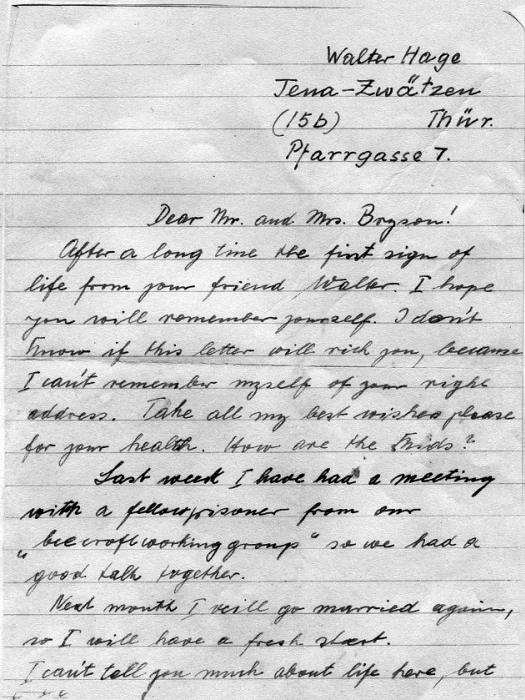 Walter Hage
Jena-Zwätzen
(15b) Thür.
Pfarrgasse 7.
Dear Mr. and Mrs. Bryson!
After a long time the first sign of
life from your friend Walter. I hope
you will remember yourself. I don't
know if this letter will rich you, because
I can't remember myself of your right
address. Take all my best wishes please
for your health. How are the Kids?
Last week I have had a meeting
with a fellowprisoner from our
"beecroftworkinggroup" so we had a
good talk together.
Next month I will go married again,
so I will have a fresh start.
I can't tell you much about life here, but